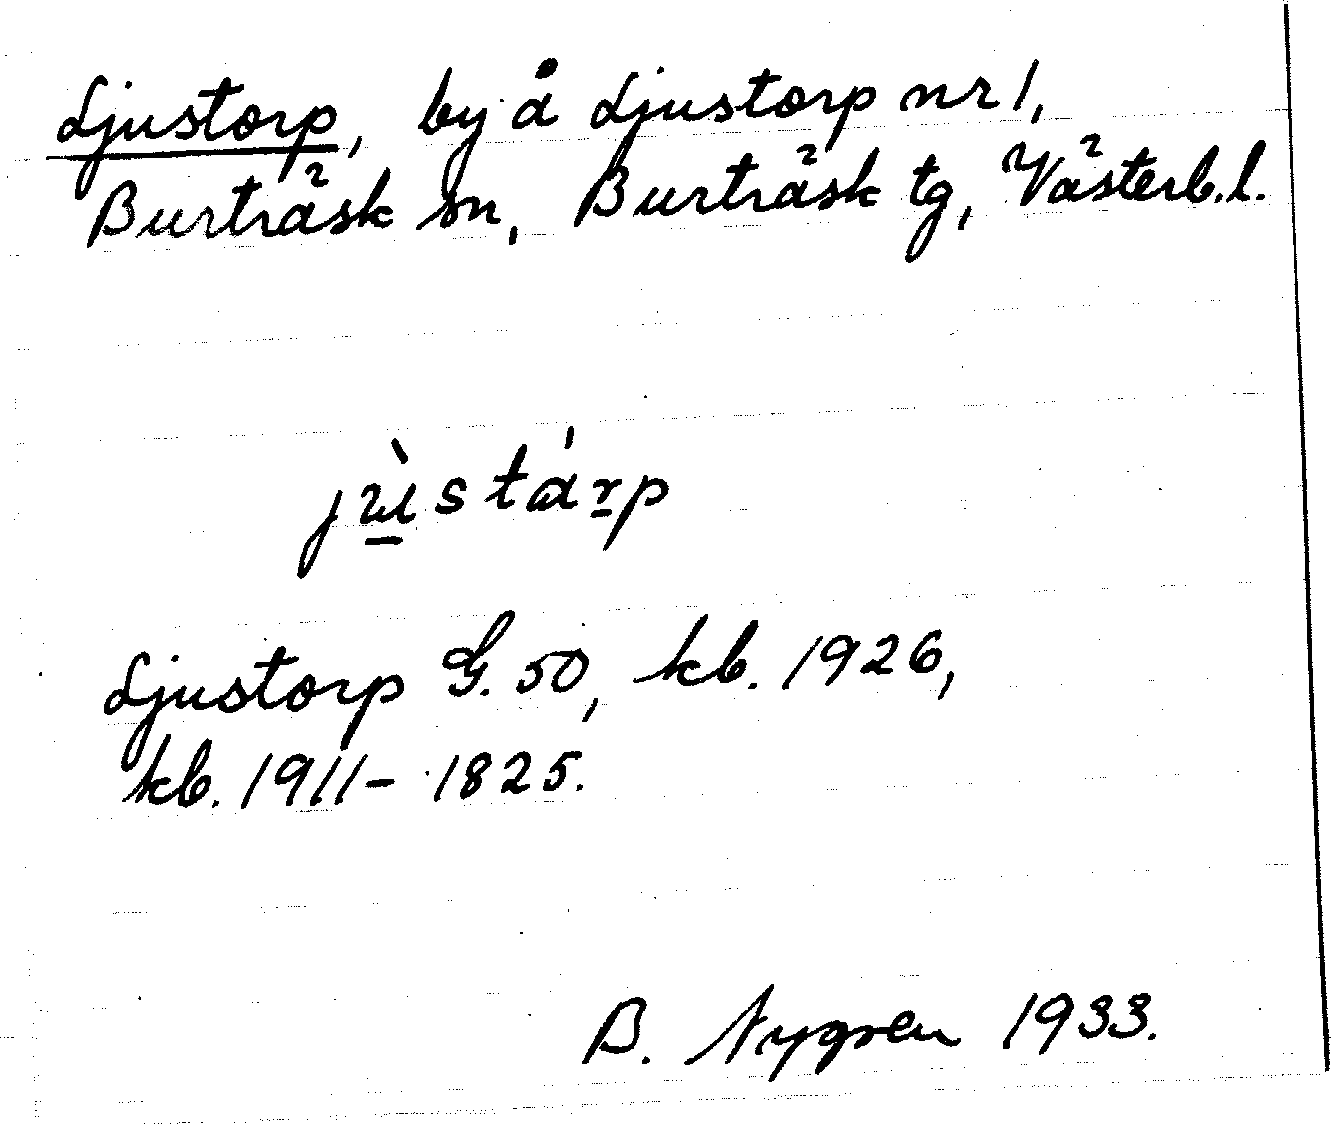 Ljustorp, by å Ljustorp nr 1,
Burträsk sn, Burträsk tg, Västerb. l.
jùstárp
Ljustorp G. 50, kb. 1926,
kb. 1911- 1825.
B. Nygren 1933.